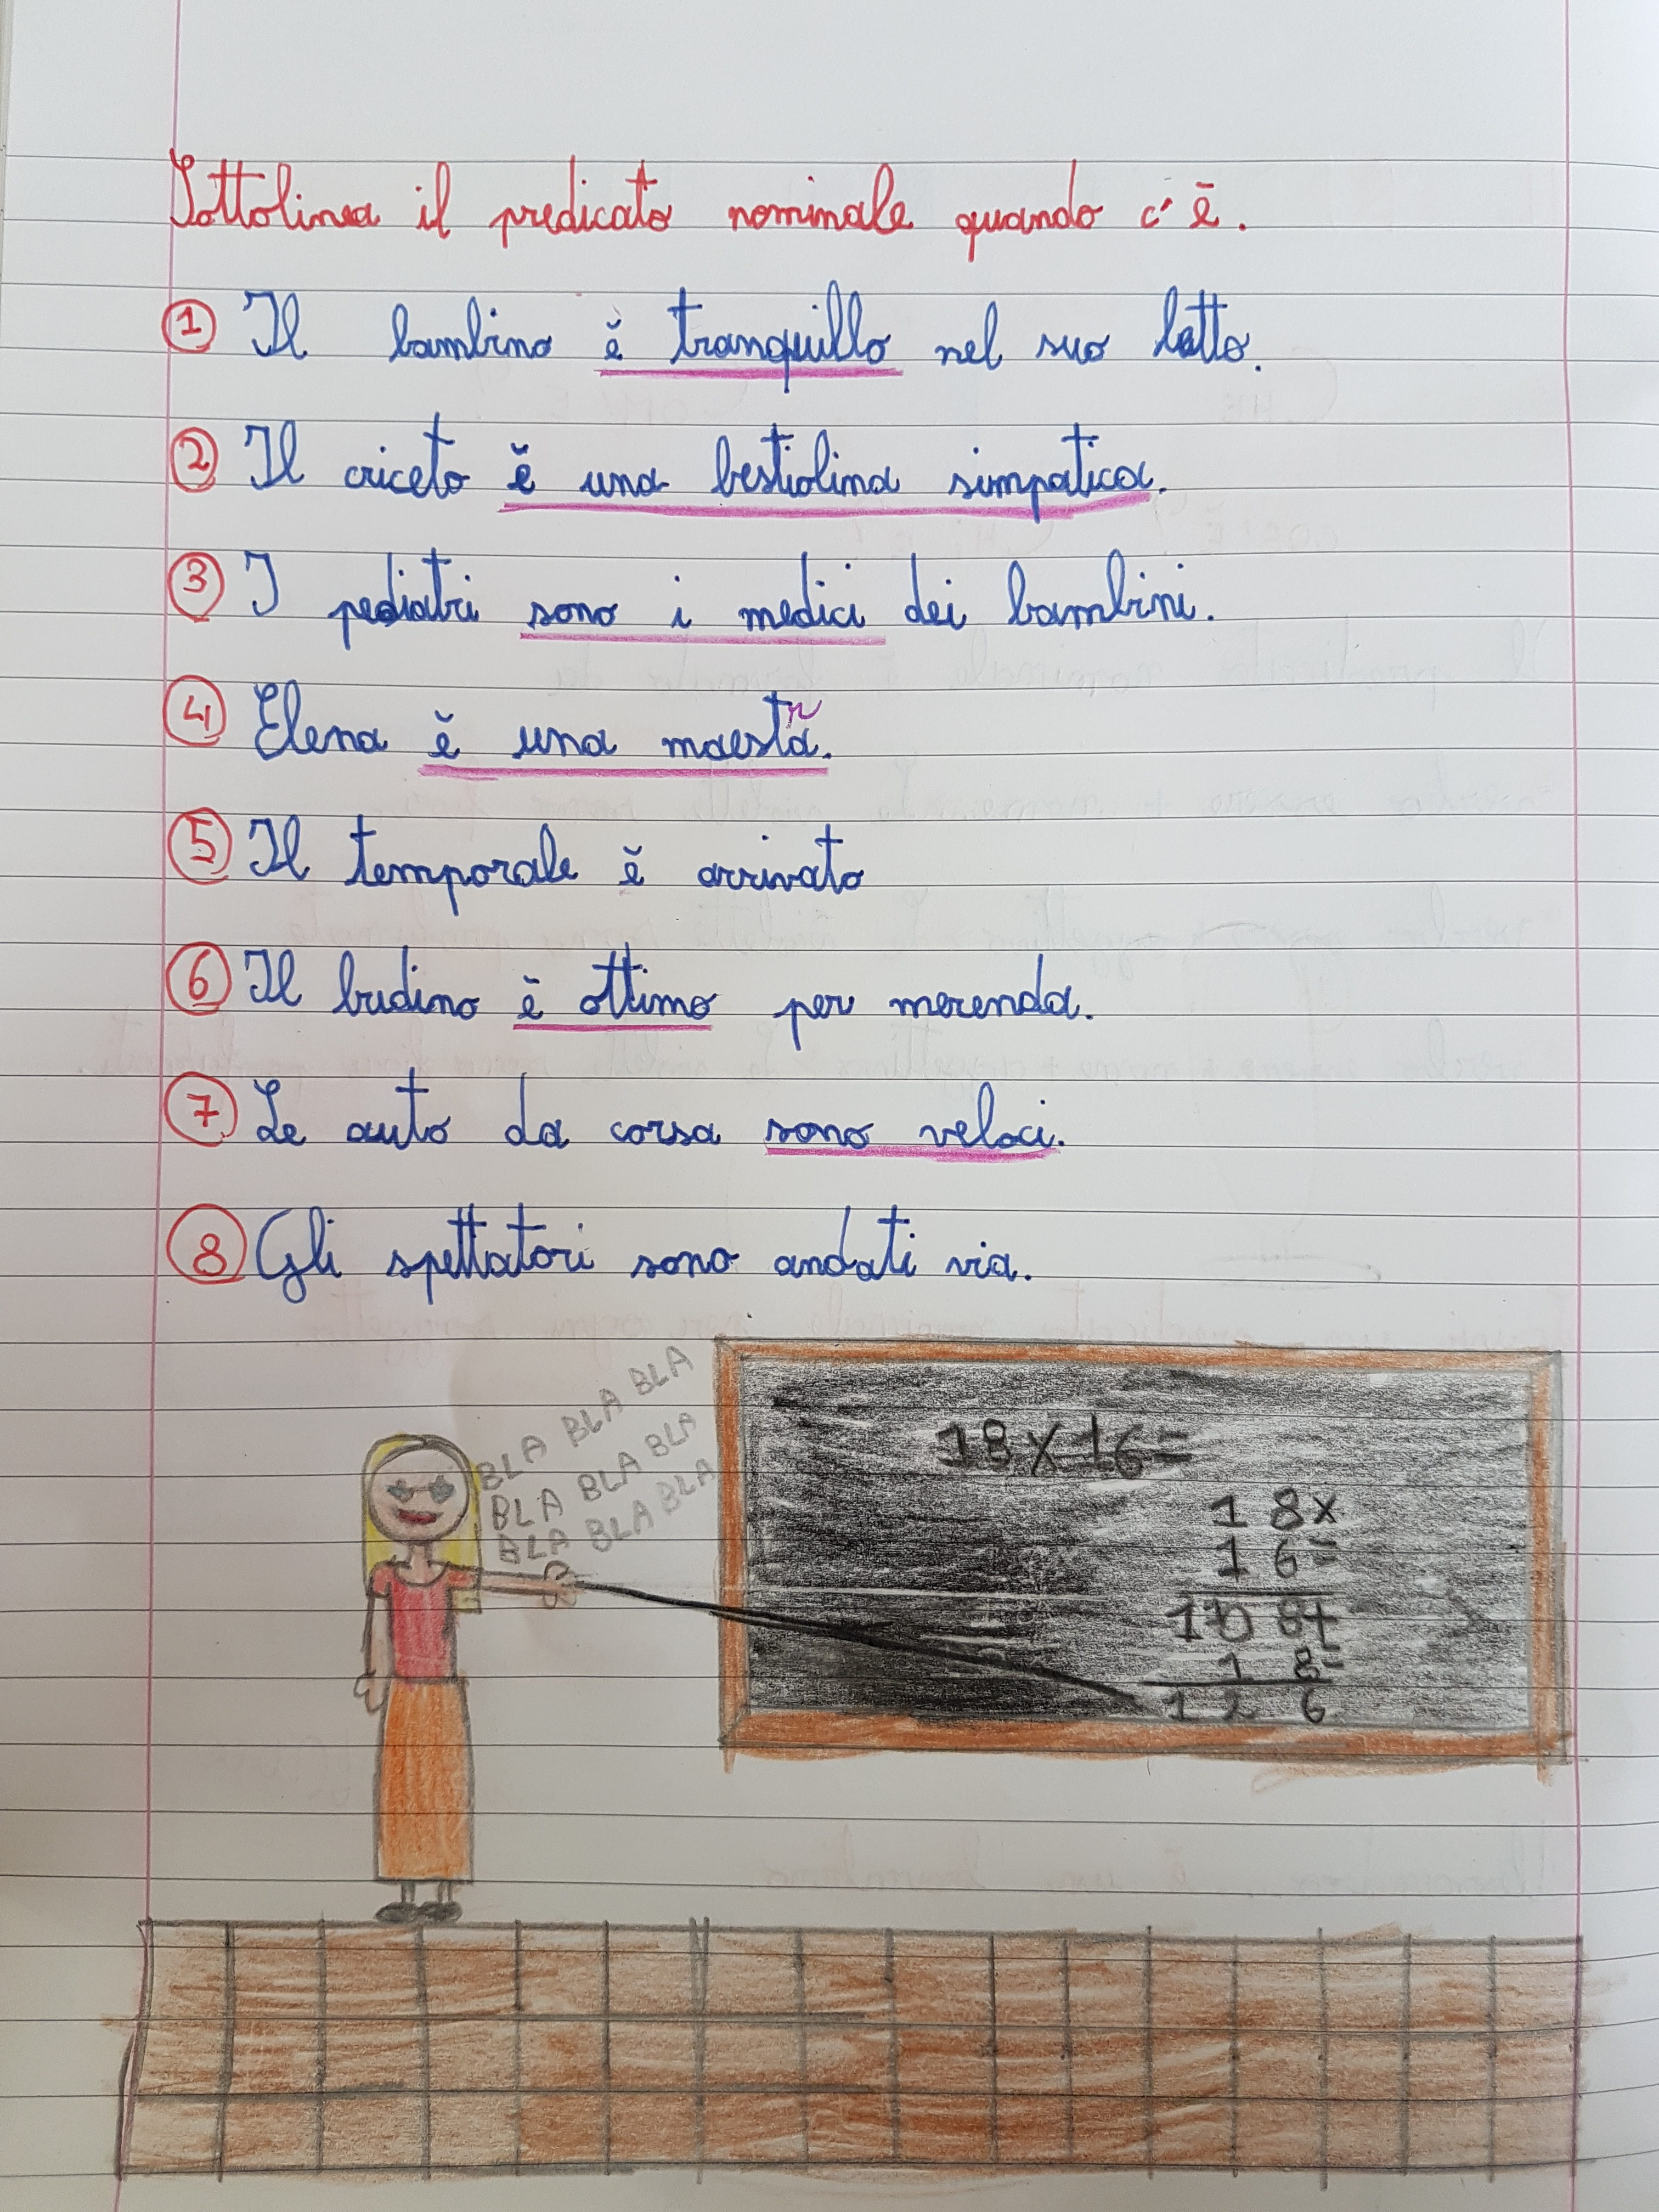 Sottolinea il predicato nominale quando c'è.
1 Il bambino è tranquillo nel suo letto.
2 Il criceto è una bestiolina simpatica.
3 I pediatri sono i medici dei bambini.
4 Elena è una maestra.
5 Il temporale è arrivato
6 Il budino è ottimo per merenda.
7 Le auto da corsa sono veloci.
8 Gli spettatori sono andati via.
BLA BLA BLA
BLA BLA BLA
BLA BLA BLA
18x16=
18x
16=
108+
18=
126